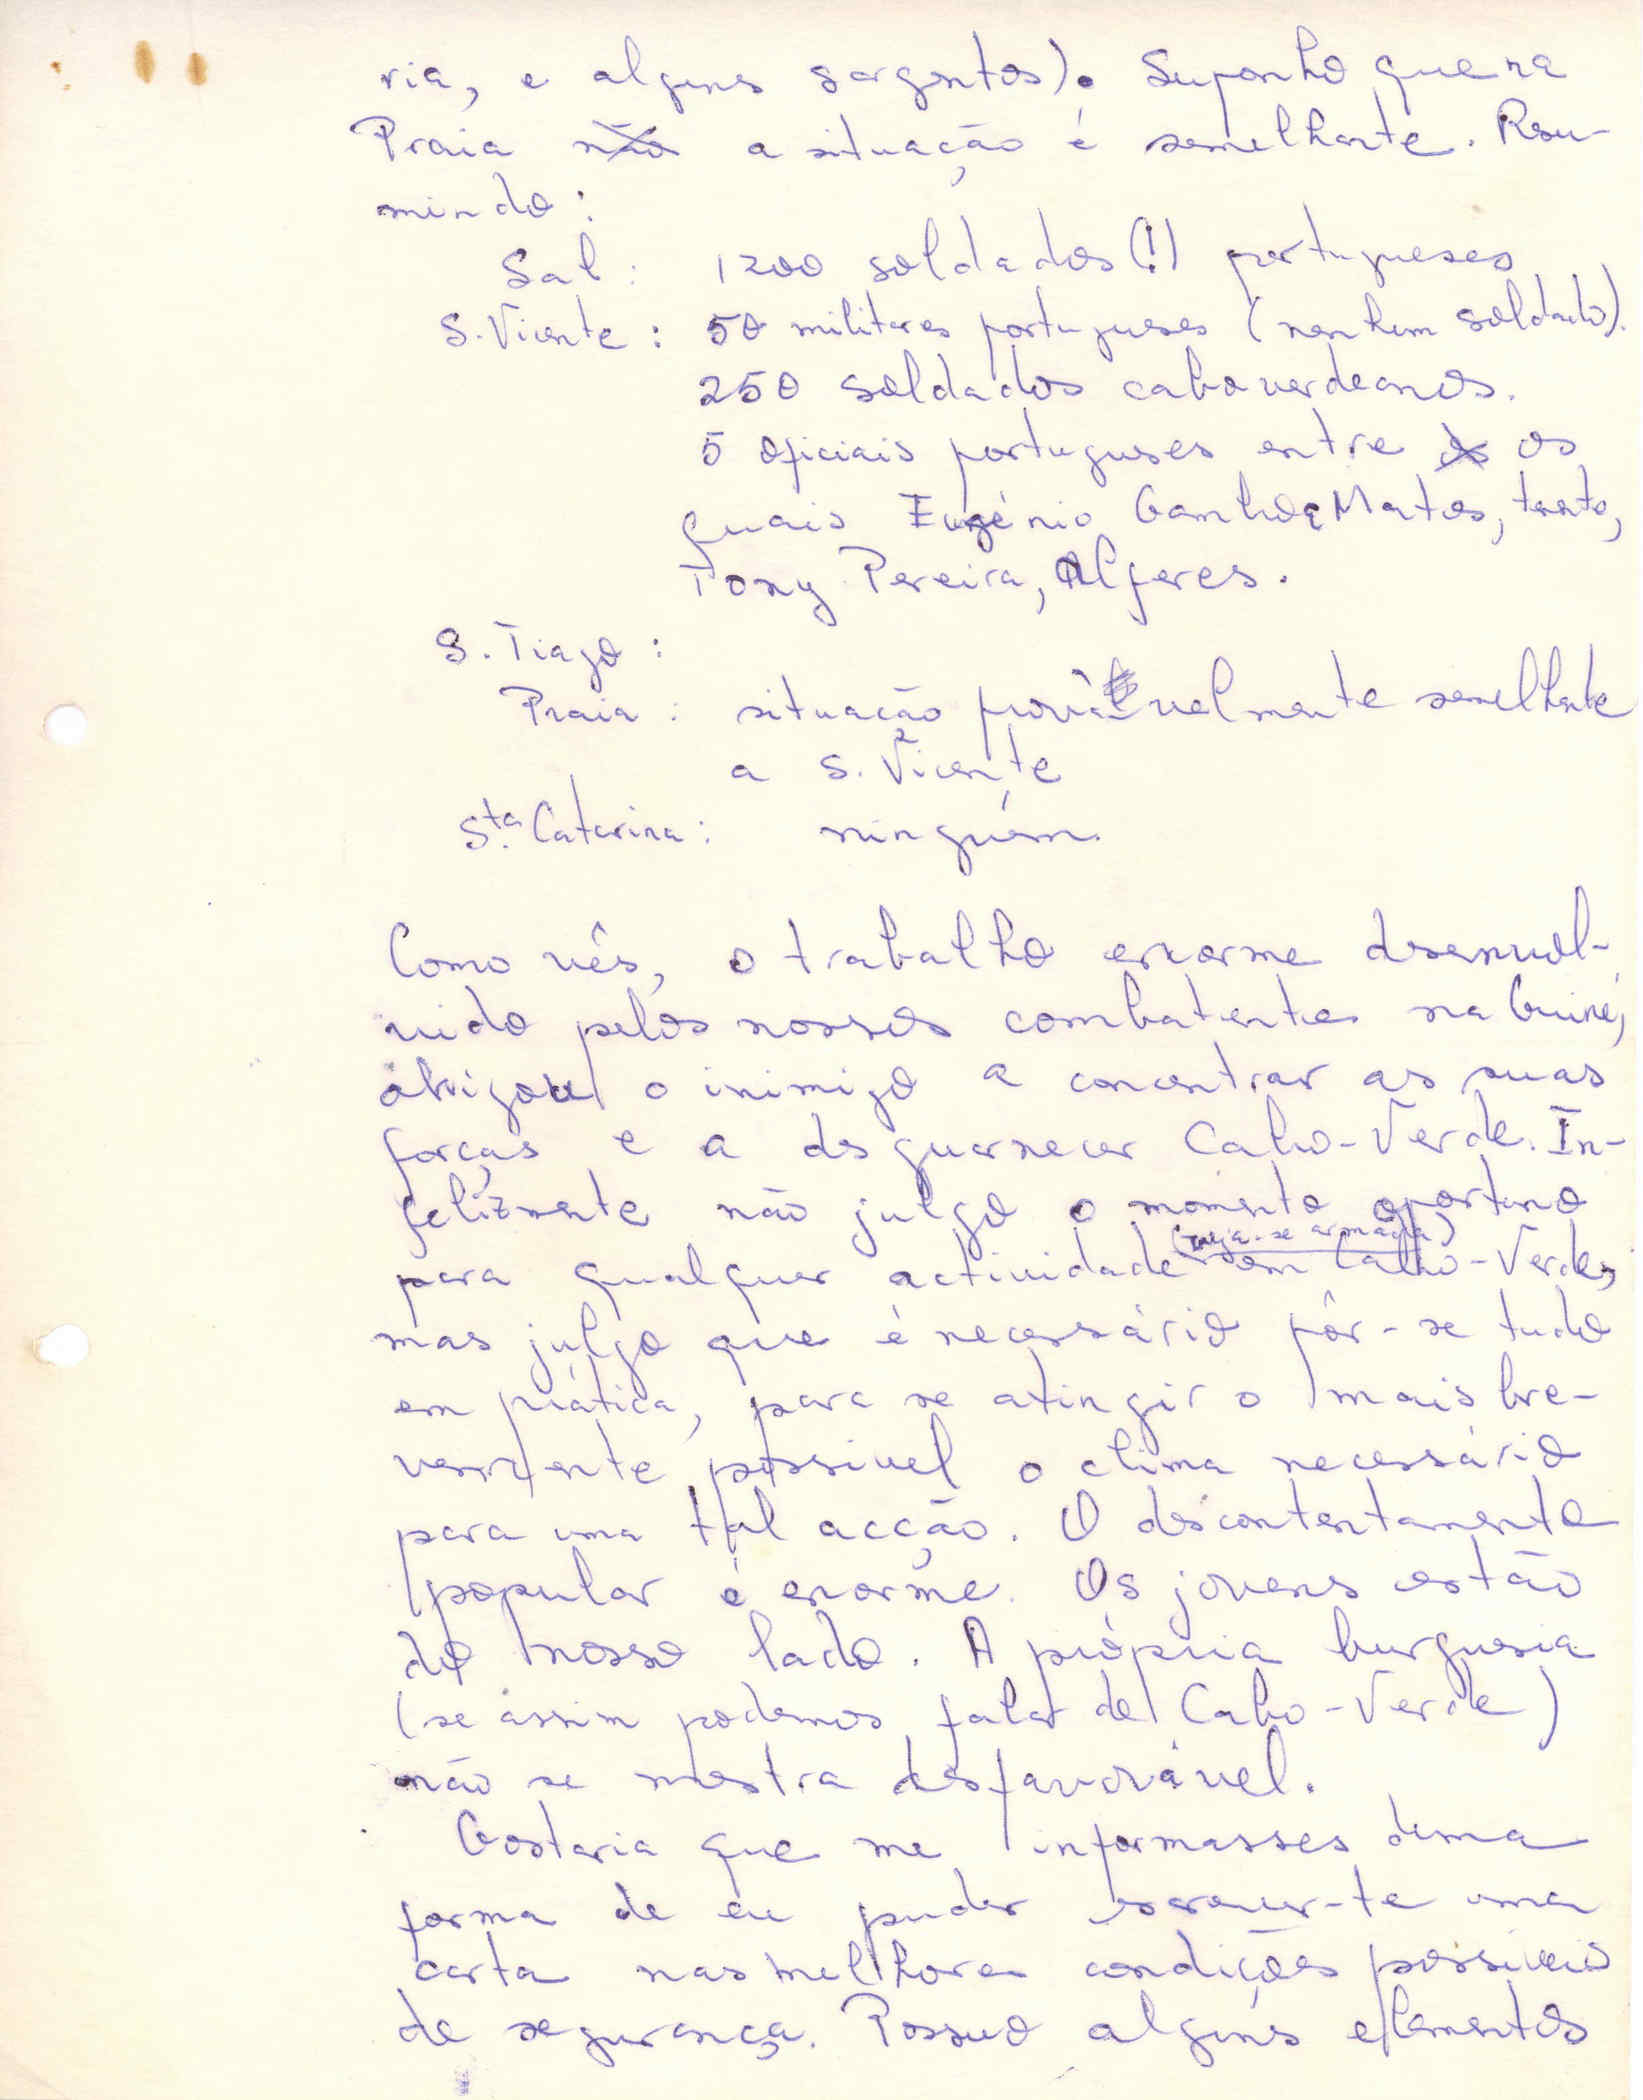 ria, e alguns sargentos). Suponho que na
Praia não a situação é semelhante. Resu-
mindo:
Sal: 1200 soldados (!) portugueses
S. Vicente: 50 militares portugueses (nenhum soldado).
250 soldados caboverdeanos.
5 oficiais portugueses entre os os
quais Eugénio Ganho e Matos, tente,
Tony Pereira, Alferes.
S. Tiago:
Praia: situação provàvelmente semelhante
a S. Vicente
Sta. Catarina: ninguém.
Como vês, o trabalho enorme desenvol-
vido pelos nossos combatentes na Guiné,
obrigou o inimigo a concentrar as suas
forças e a desguarnecer Cabo-Verde. In-
felizmente não julgo o momento oportuno
(veja-se armada)
para qualquer actividade em Cabo-Verde,
mas julgo que é necessário pôr-se tudo
em prática, para se atingir o mais bre-
vemente possivel o clima necessário
para uma tal acção. O descontentamento
popular é enorme. Os jovens estão
do nosso lado. A própria burguesia
(se assim podemos falar de Cabo-Verde)
não se mostra desfavorável.
Gostaria que me informasses duma
forma de eu puder escrever-te uma
carta nas melhores condições possiveis
de segurança. Possuo alguns elementos